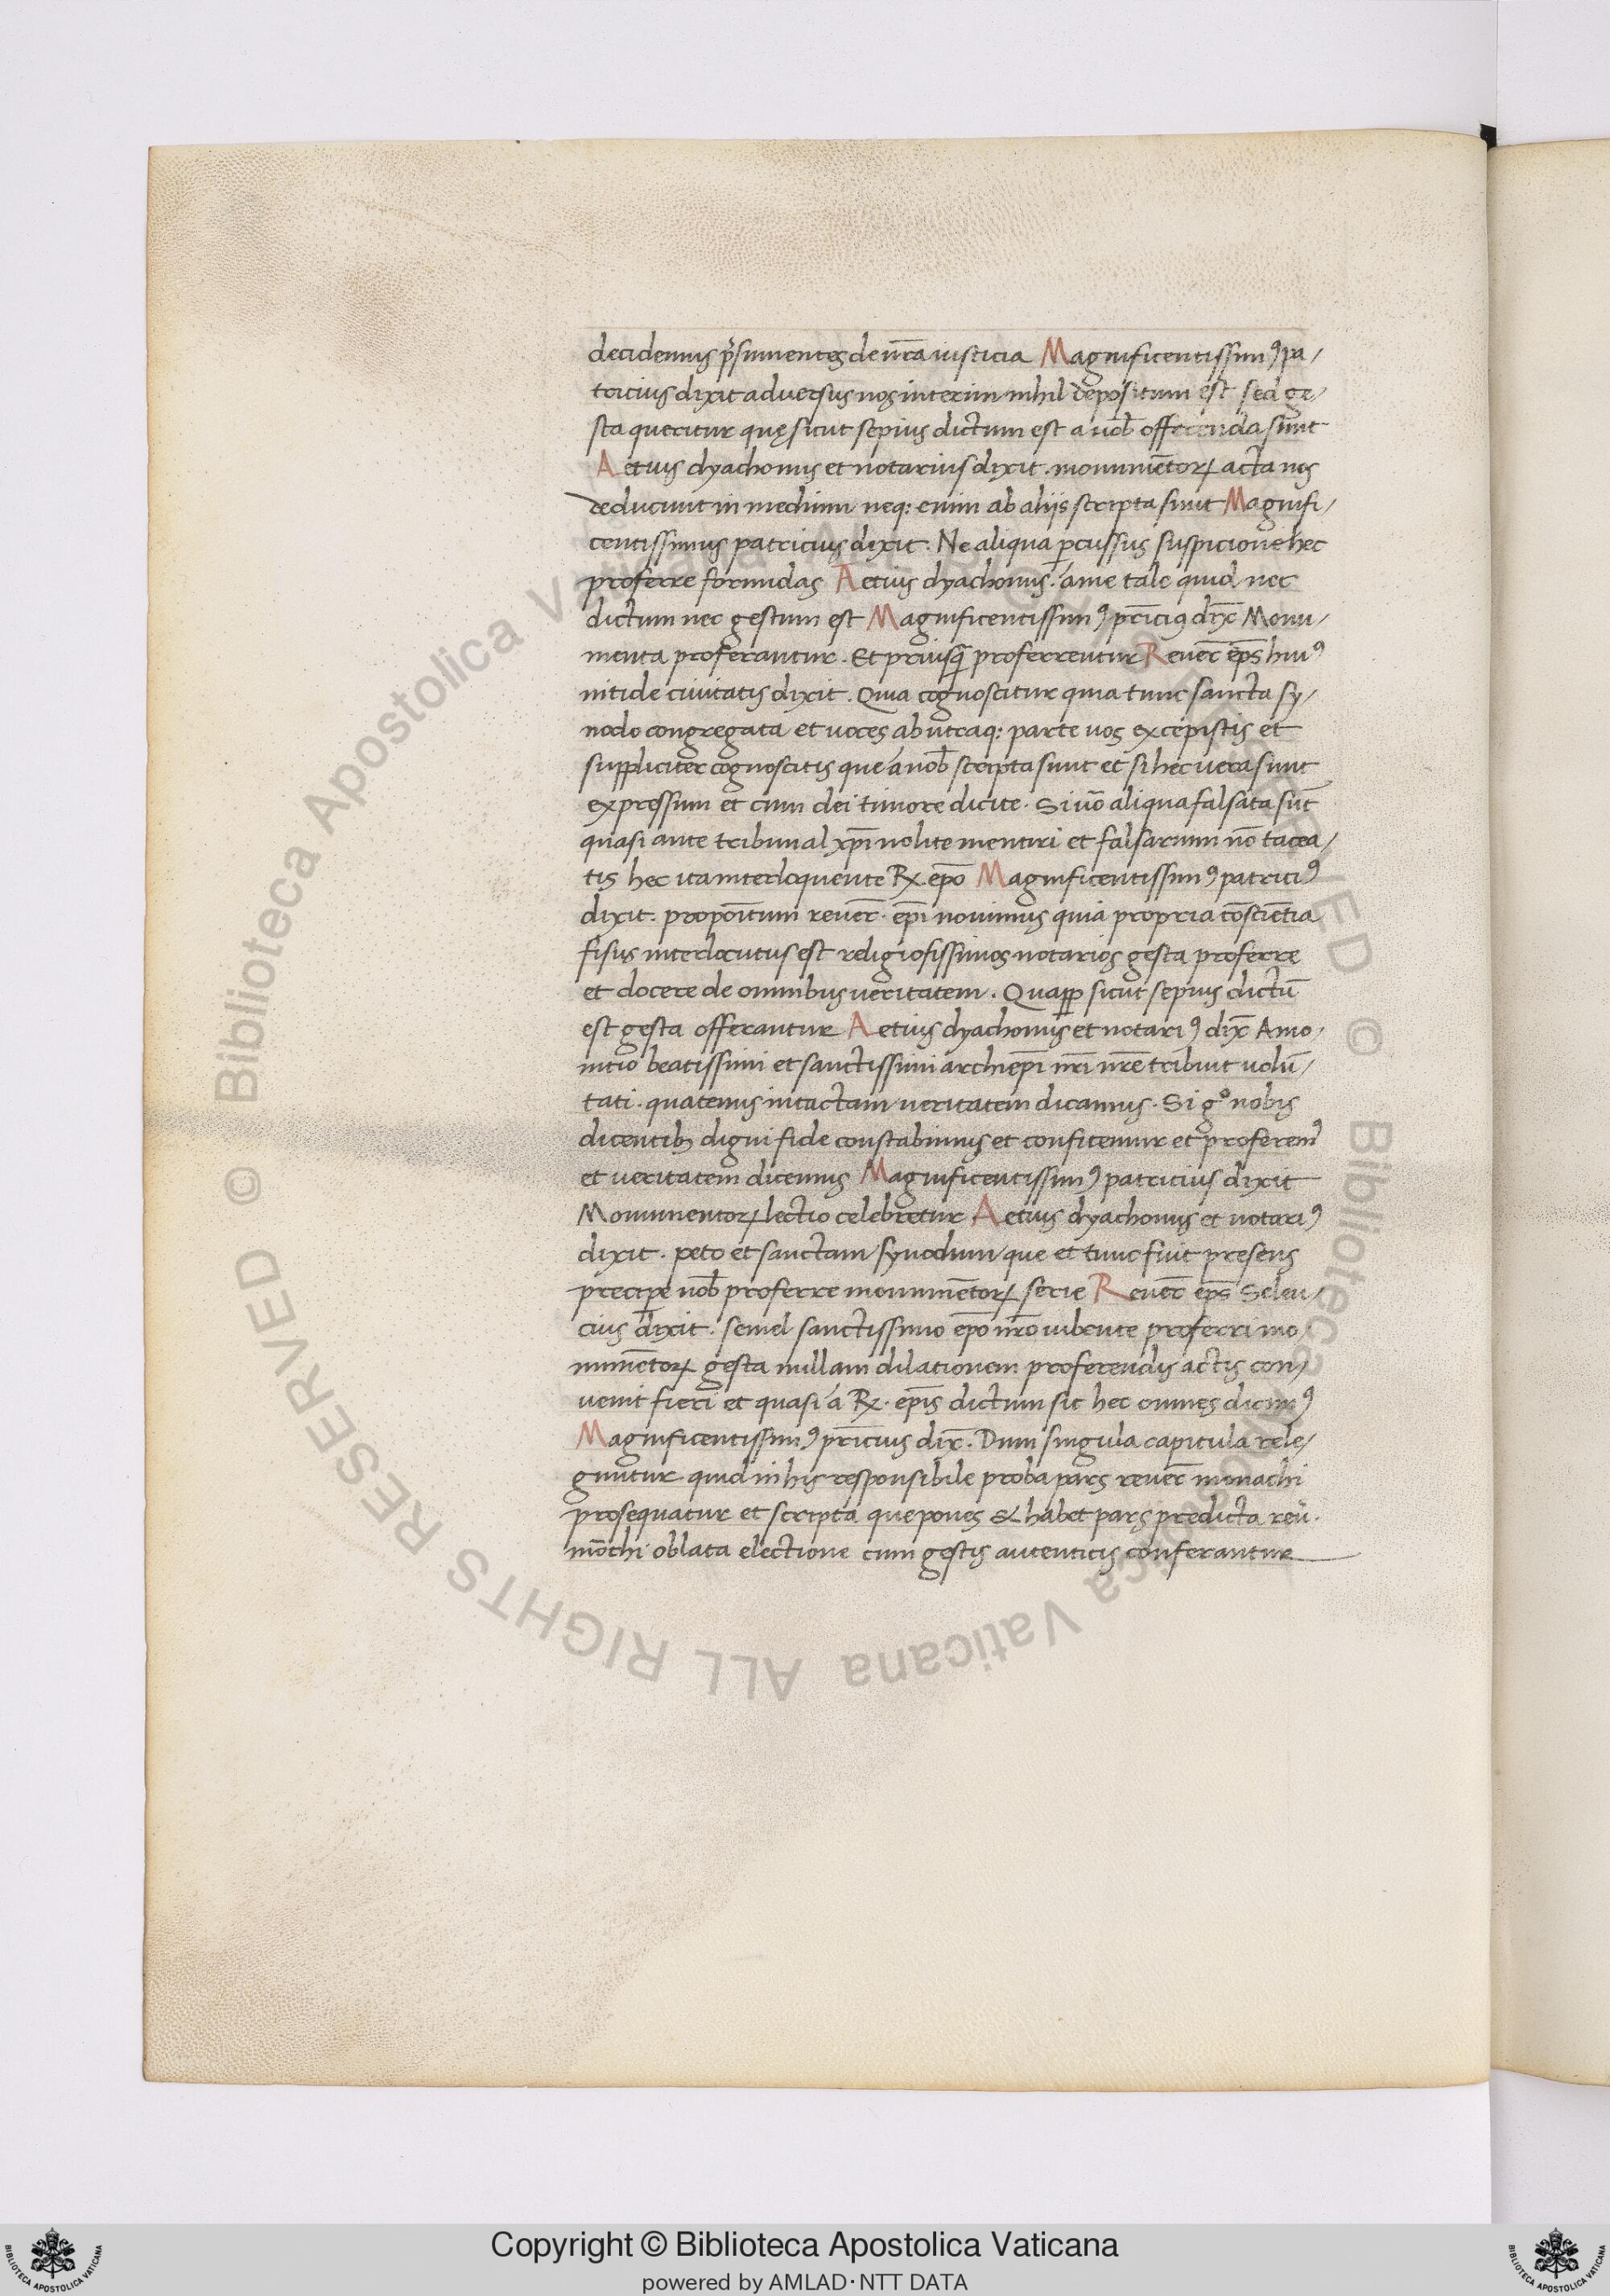 decidemus p̄sumentes de ur̄a iusticia Magnificentissimꝰ pa/
tricius dixit adversus nos interim nihil depositum est sed ge/
sta queritur quę sicut sepius dictum est a uob̄ offerenda sunt
Aetius dyachonus et notarius dixit. monumētoꝝ acta nos
deducunt in medium neq: enim ab aliis scripta sunt Magnifi/
centissimus patricius dixit. Ne aliqua ꝑcussus suspicione hec
proferre formidas Aetius dyachonus. a me tale quid nec
dictum nec gestum est Magnificentissimꝰ pr̄iciꝰ dix̄ Monu/
menta proferantur. Et priusq̄ proferrentur Reuer̄ ep̄s huiꝰ
nitide ciuitatis dixit. Quia cognoscitur quia tunc sancta sy/
nodo congregata et uoces ab utraq: parte uos excepistis et
suppliciter cognoscitis que a uob̄ scripta sunt et si hec uera sunt
expressum et cum dei timore dicite. Si uō aliqua falsata sūt
quasi ante tribunal xp̄i nolite mentiri et falsarium nō tacea/
tis hec ita interloquente Rx. ep̄o Magnificentissimꝰ patriciꝰ
dixit. propoītum reuer̄. ep̄i nouimus quia propria cōsciētia
fisus interlocutus est religiosissimos notarios gesta proferre
et docere de omnibus ueritatem. Quaꝓꝑ sicut sepius dictū
est gesta offerantur Aetius dyachonus et notariꝰ dix̄ Amo.
nitio beatissimi et sanctissimi archiep̄i nr̄i nr̄e tribuit uolū/
tati. quatenus intactam ueritatem dicamus. Si g° nobis
dicentibꝫ digni fide constabimus et confitemur et proferemꝰ
et ueritatem dicemus Magnificentissimꝰ patricius dixit
Monumentoꝝ lectio celebretur Aetius dyachonus et notariꝰ
dixit. peto et sanctam synodum que et tunc fuit presens
precipe uob̄ proferre monumētoꝝ serie Reuer̄ ep̄s Seleu/
cius dixit. semel sanctissimo ep̄o nr̄o iubente proferri mo/
numētoꝝ gesta nullam dilationem proferendis actis con/
uenit fieri et quasi a Rx. ep̄is dictum sit hec omnes dicimꝰ
Magnificentissimꝰ pr̄icius dix̄. Dum singula capitula rele/
guntur quid in his responsibile proba pars reuer̄ monachi
prosequatur et scripta que penes se habet pars predicta reū.
mōchi oblata electione cum gestis autenticis conferantur
Copyright © Biblioteca Apostolica Vaticana
powered by AMLAD·NTT DATA
© Biblioteca Apostolica Vaticana ALL RIGHTS RESERVED © Biblioteca Apostolica Vaticana ALL RIGHTS RESERVED
BIBLIOTECA APOSTOLICA VATICANA
BIBLIOTECA APOSTOLICA VATICANA